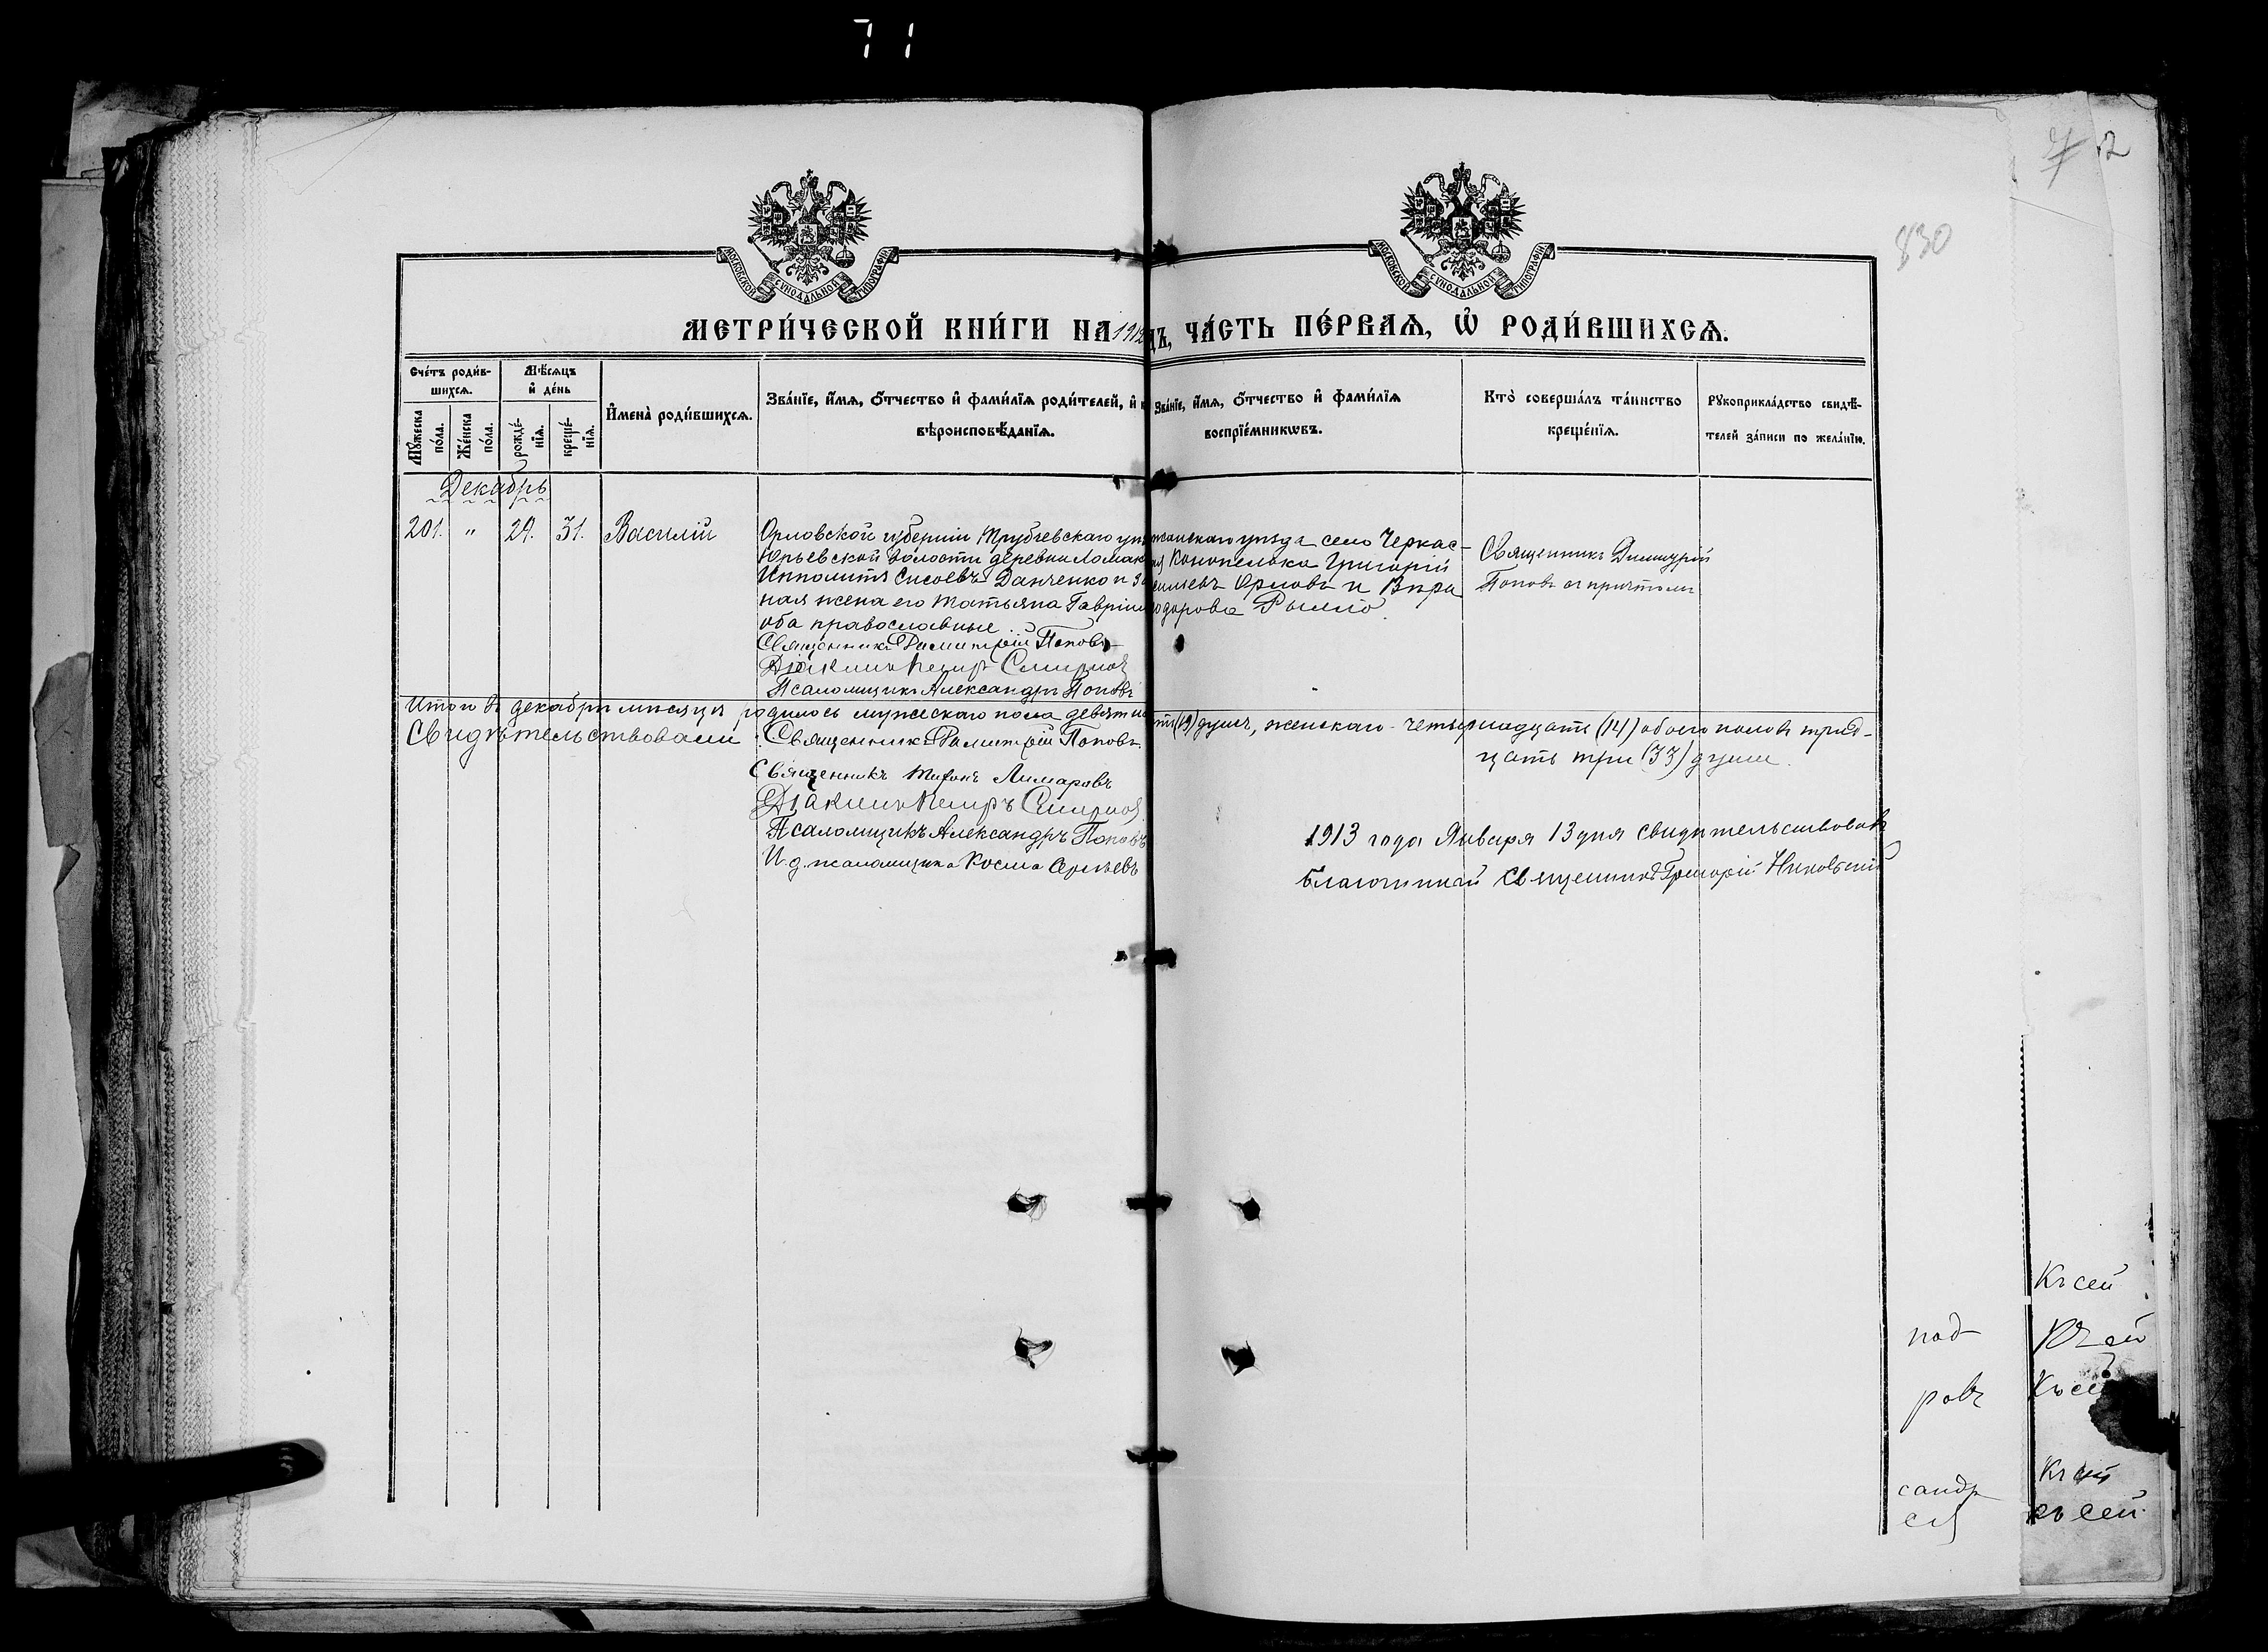 71
72
830
МОСКОВСКОЙ СУНОДАЛЬНОЙ ТИПОГРАФІИ
МОСКОВСКОЙ СУНОДАЛЬНОЙ ТИПОГРАФІИ
МЕТРИ́ЧЕСКОЙ КНИ́ГИ НА 1912
ДЪ, ЧА́СТЬ ПЕ́РВАѦ, Ѡ҆ РОДИ́ВШИХСѦ.
Сче́тъ роди́в-
шихсѧ.
Мѣ́сѧцъ
и҆ де́нь
Мꙋ́жеска
по́ла.
Же́нска
по́ла.
рожде́-
нїѧ.
креще́-
нїѧ.
И҆мена̀ роди́вшихсѧ.
Зва́нїе, и҆́мѧ, ѻ҆́тчество и҆ фами́лїѧ роди́телей, и҆ к
вѣроисповѣ́данїѧ.
Зва́нїе, и҆́мѧ, ѻ҆́тчество и҆ фами́лїѧ
воспрїе́мникѡвъ.
Кто̀ соверша́лъ та́инство
креще́нїѧ.
Рꙋкоприкла́дство свидѣ́-
телей за́писи по жела́нїю.
Декабрь
201. " 29. 31. Василій
Орловской губерніи Трубчевскаго уѣ
Юрьевской волости деревни Ломак
Ипполитъ Сисоевъ Данченко и за
ная жена его Татьяна Гавріил
оба православные
Священникъ Димитрій Поповъ
Діаконъ Петръ Смирнов
Псаломщикъ Александръ Поповъ
жанскаго уѣзда село Черкас-
Конопелока Григорій
сильевъ Орловъ и Вѣра
одорова
Священникъ Димитрій
Поповъ съ причтомъ
Итого въ декабрѣ мѣсяцѣ родилось мужескаго пола девятна
ть (19) душъ, женскаго - четырнадцать (14) обоего половъ трид-
цать три (33) души.
Свидѣтельствовали: Священникъ Димитрій Поповъ.
Священникъ Тихонъ Лимаровъ
Діаконъ Петръ Смирнов
Псаломщикъ Александръ Поповъ
И. д. псаломщика Косма
1913 года Января 13 дня свидѣтельствовалъ
Благочинный Священникъ Григорій
Къ сей
под
Къ сей
ровъ
Къ сей
сандр
Къ сей
къ сей